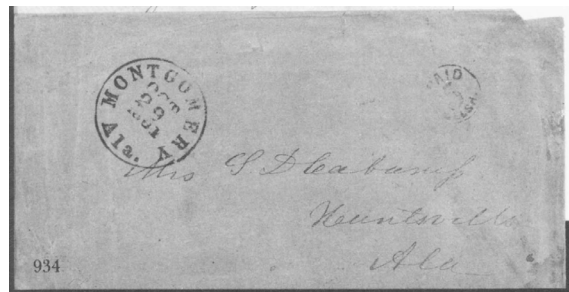 MONTGOMERY Ala.
OCT
29
1861
PAID
Mrs S D Cabaniss
Huntsville
Ala
934